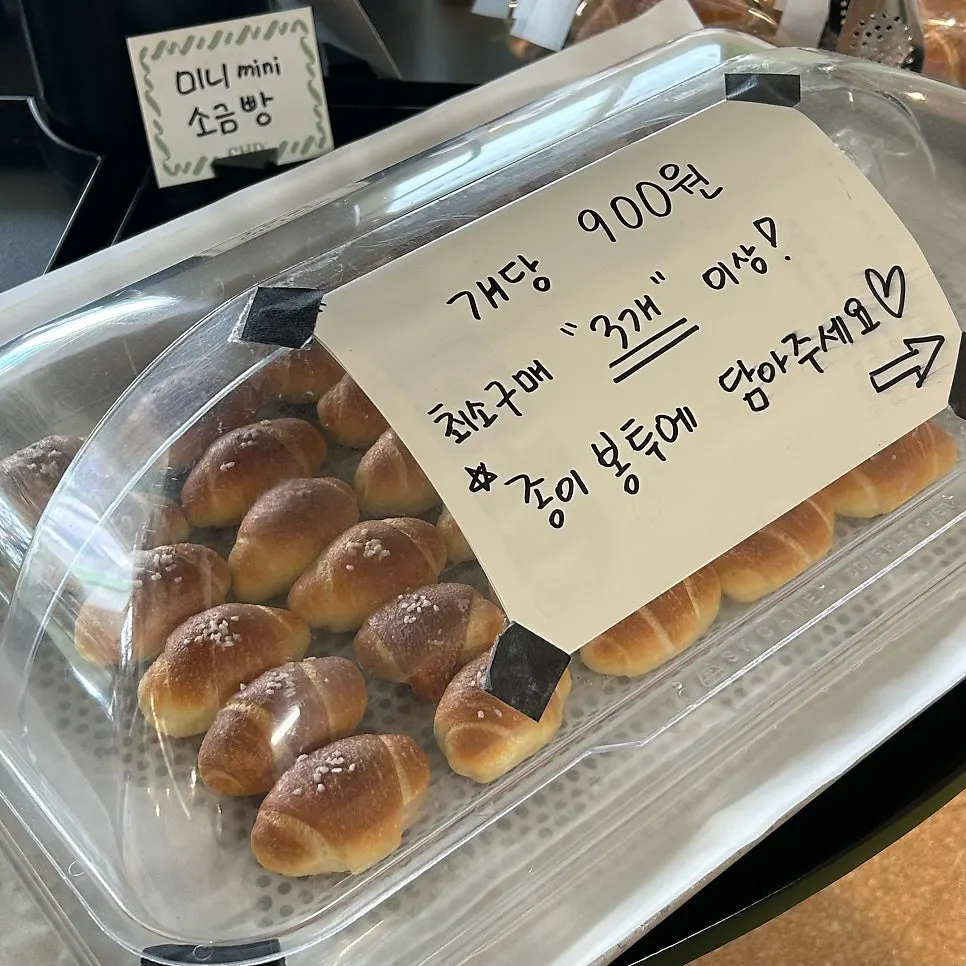 미니 mini
소금빵
개당 900원
최소구매 "3개" 이상!
☆종이 봉투에 담아주세요♡
⇨